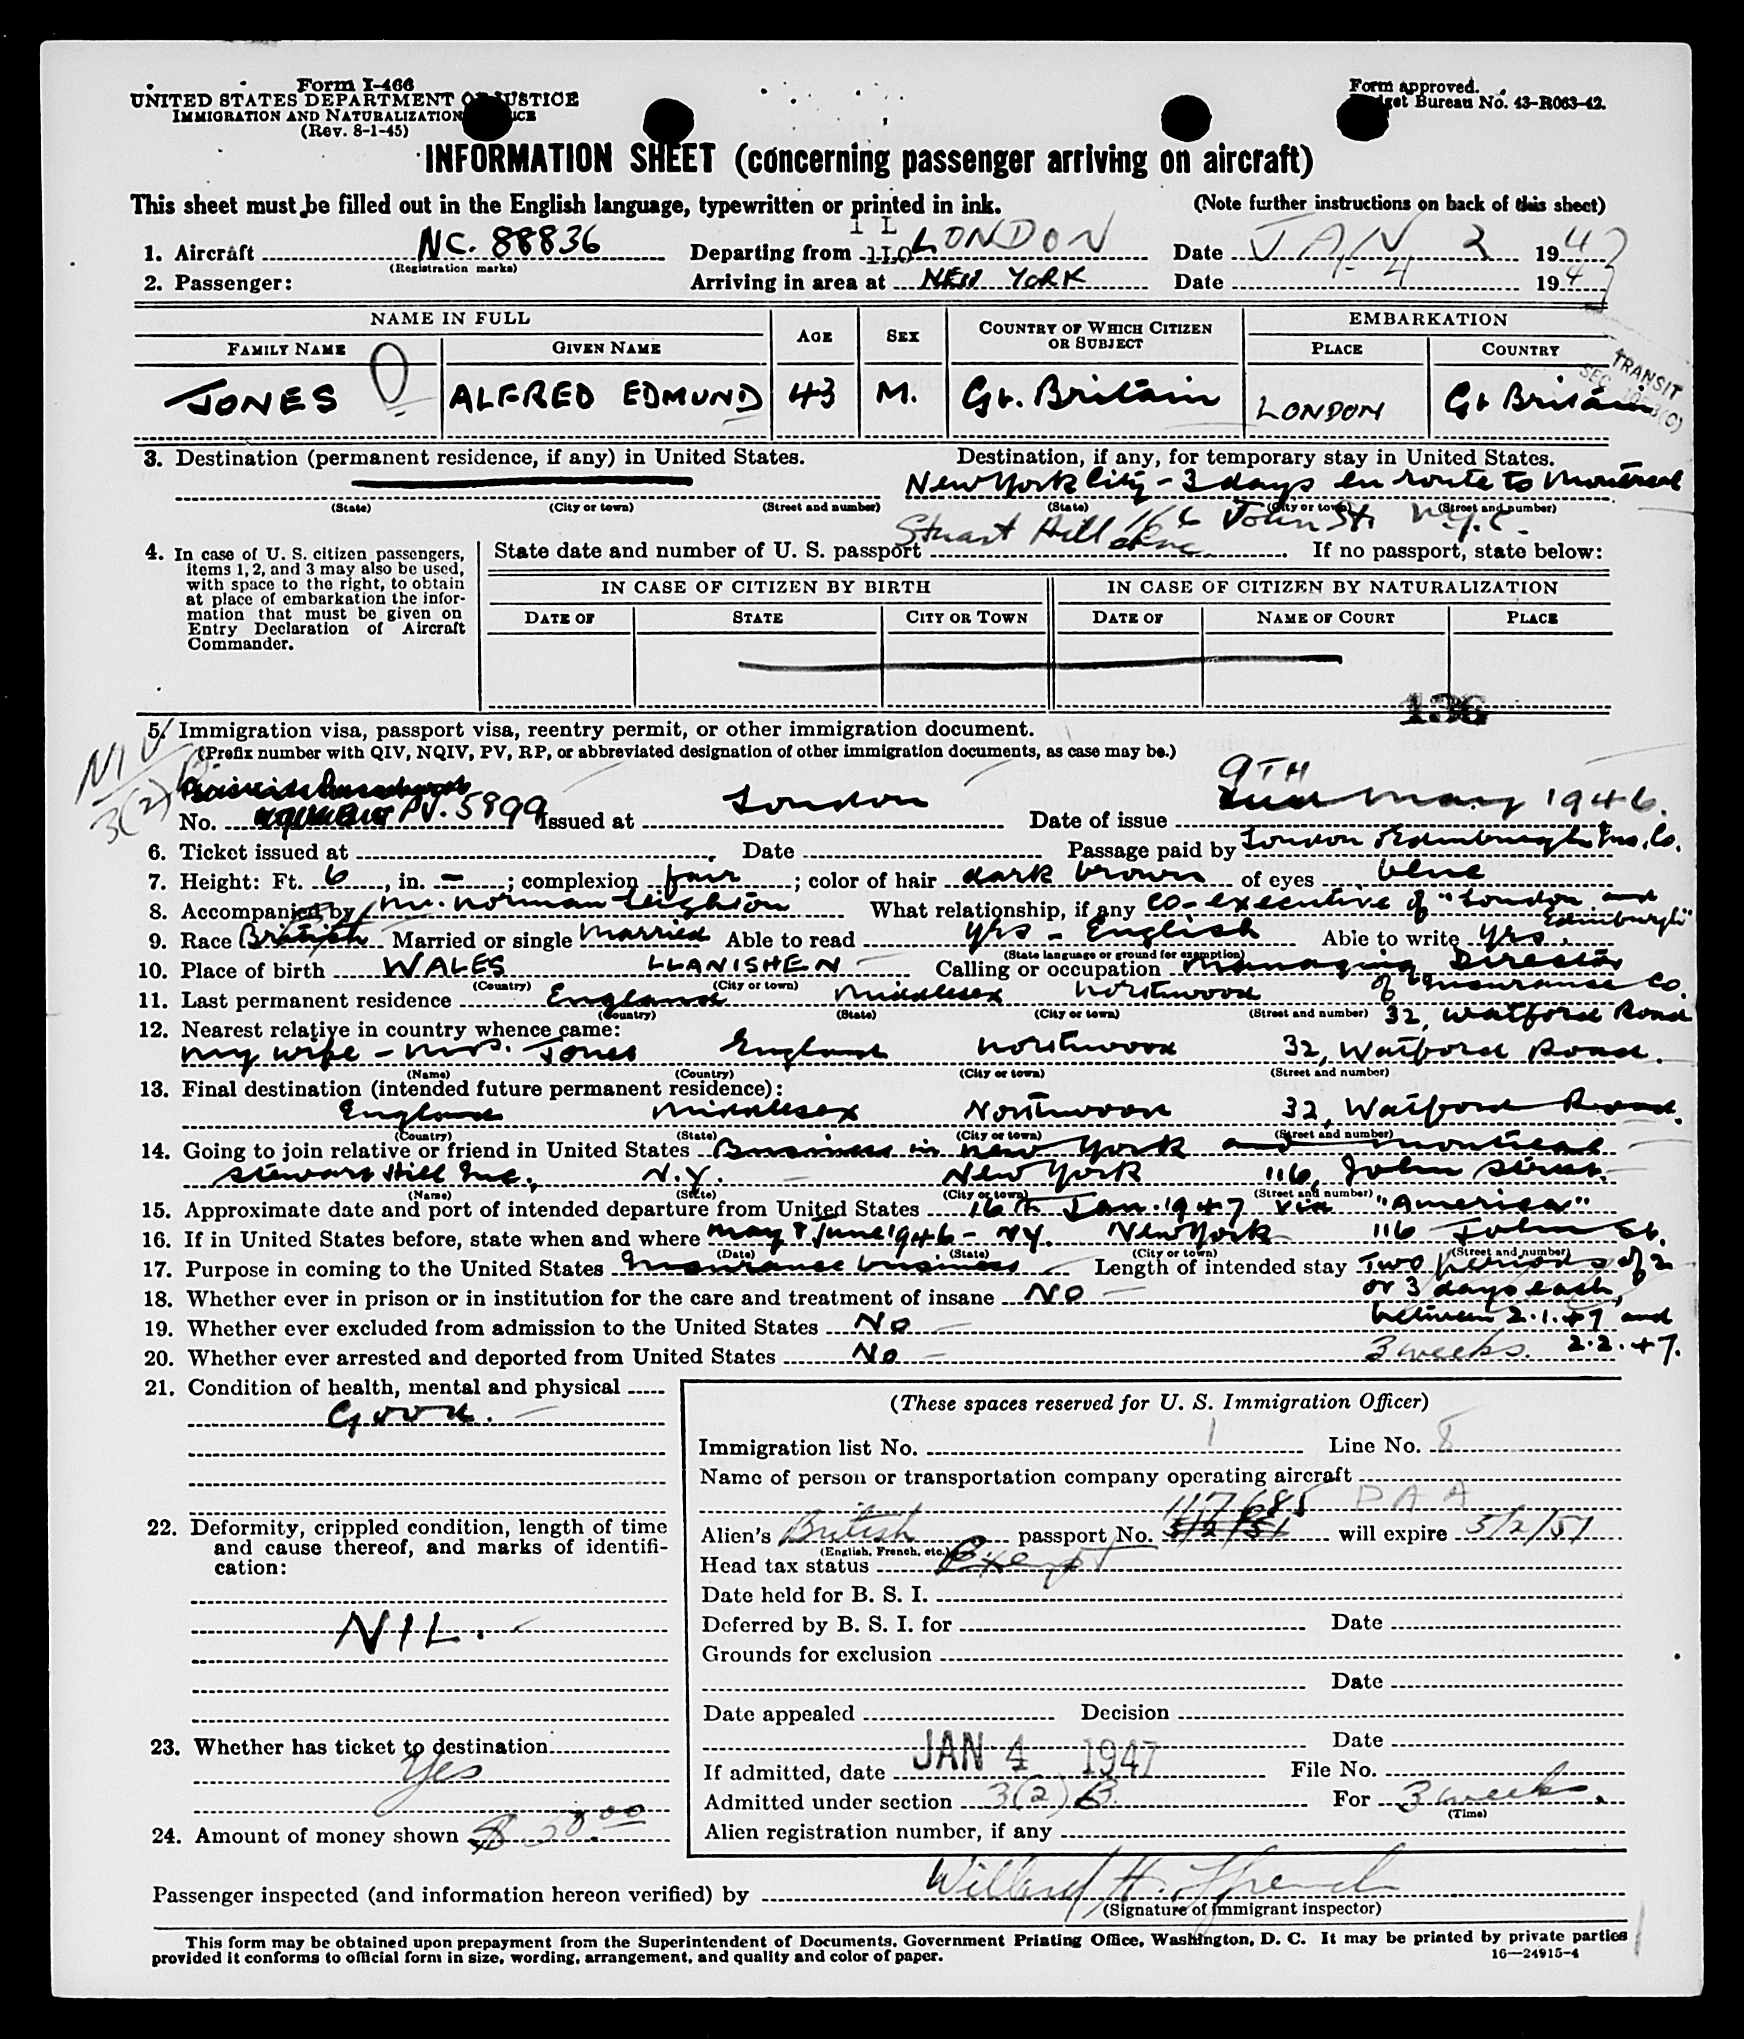 Form I-466
UNITED STATES DEPARTMENT OF JUSTICE
IMMIGRATION AND NATURALIZATION SERVICE
(Rev. 8-1-45)
Form approved.
Budget Bureau No. 43-R063-42.
INFORMATION SHEET (concerning passenger arriving on aircraft)
This sheet must be filled out in the English language, typewritten or printed in ink. (Note further instructions on back of this sheet)
1. Aircraft NC. 88836 Departing from LONDON Date JAN 2 1947
(Registration marks)
2. Passenger: Arriving in area at NEW YORK Date 1-4 1947
NAME IN FULL AGE SEX COUNTRY OF WHICH CITIZEN OR SUBJECT EMBARKATION
FAMILY NAME GIVEN NAME PLACE COUNTRY
TRANSIT
JONES ALFRED EDMUND 43 M. Gt. Britain LONDON Gt Britain
3. Destination (permanent residence, if any) in United States. Destination, if any, for temporary stay in United States.
New York City - 3 days en route to Montreal
(State) (City or town) (Street and number) (State) (City or town) (Street and number)
Stuart Hill Inc. 166 John St. N.Y.C.
4. In case of U. S. citizen passengers, items 1, 2, and 3 may also be used, with space to the right, to obtain at place of embarkation the information that must be given on Entry Declaration of Aircraft Commander.
State date and number of U. S. passport If no passport, state below:
IN CASE OF CITIZEN BY BIRTH IN CASE OF CITIZEN BY NATURALIZATION
DATE OF STATE CITY OR TOWN DATE OF NAME OF COURT PLACE
136
5. Immigration visa, passport visa, reentry permit, or other immigration document.
(Prefix number with QIV, NQIV, PV, RP, or abbreviated designation of other immigration documents, as case may be.)
NIV
3(2)B
9TH
No. PV. 5899 Issued at London Date of issue May 1946.
6. Ticket issued at Date Passage paid by London & Edinburgh Ins. Co.
7. Height: Ft. 6, in. -; complexion fair; color of hair dark brown of eyes blue
8. Accompanied by Mr. Norman Leighton What relationship, if any co-executive of "London and Edinburgh"
9. Race British Married or single Married Able to read yes - English Able to write yes.
(State language or ground for exemption)
10. Place of birth WALES LLANISHEN Calling or occupation Managing Director
(Country) (City or town)
of Insurance Co.
11. Last permanent residence England Middlesex Northwood 32, Watford Road
(Country) (State) (City or town) (Street and number)
12. Nearest relative in country whence came:
My wife - Mrs. Jones England Northwood 32, Watford Road.
(Name) (Country) (City or town) (Street and number)
13. Final destination (intended future permanent residence):
England Middlesex Northwood 32, Watford Road.
(Country) (State) (City or town) (Street and number)
14. Going to join relative or friend in United States Business in New York and Montreal
Stewart Hill Inc., N.Y. New York 116, John Street.
(Name) (State) (City or town) (Street and number)
15. Approximate date and port of intended departure from United States 16th Jan. 1947 via "America"
16. If in United States before, state when and where May & June 1946 - NY. New York 116 John St.
(Date) (State) (City or town) (Street and number)
17. Purpose in coming to the United States Insurance business Length of intended stay Two periods of 2
or 3 days each,
18. Whether ever in prison or in institution for the care and treatment of insane NO
between 2.1.47 and
19. Whether ever excluded from admission to the United States No
2.2.47.
20. Whether ever arrested and deported from United States No 3 weeks.
21. Condition of health, mental and physical
Good.
22. Deformity, crippled condition, length of time and cause thereof, and marks of identification:
NIL.
23. Whether has ticket to destination
Yes
24. Amount of money shown
(These spaces reserved for U. S. Immigration Officer)
Immigration list No. 1 Line No. 8
Name of person or transportation company operating aircraft
PAA
117685
Alien's British passport No. 5/2/51 will expire 5/2/51
(English, French, etc.)
Head tax status Exempt
Date held for B. S. I.
Deferred by B. S. I. for Date
Grounds for exclusion
Date
Date appealed Decision
Date
If admitted, date JAN 4 1947 File No.
Admitted under section 3(2)B For 3 weeks.
(Time)
Alien registration number, if any
Passenger inspected (and information hereon verified) by
(Signature of immigrant inspector)
This form may be obtained upon prepayment from the Superintendent of Documents, Government Printing Office, Washington, D. C. It may be printed by private parties
provided it conforms to official form in size, wording, arrangement, and quality and color of paper.
16—24915-4